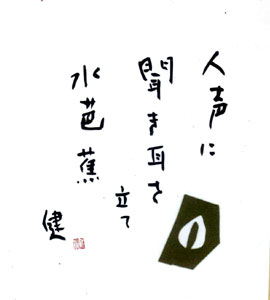 人声に
聞き耳を
立て
水芭蕉
健